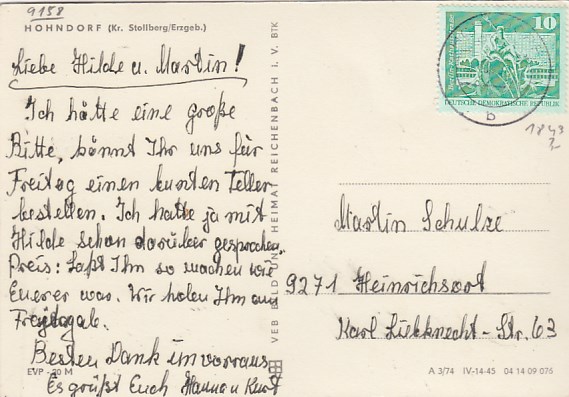 9158
HOHNDORF (Kr. Stollberg/Erzgeb.)
Liebe Hilde u. Martin!
Ich hätte eine große
Bitte, könnt Ihr uns für
Freitag einen bunten Teller
bestellen. Ich hatte ja mit
Hilde schon darüber gesprochen.
Preis: Laßt Ihm so machen wie
Euerer war. Wir holen Ihm am
Freitag ab.
Besten Dank im voraus
Es grüßt Euch Hanna u Kurt
EVP -20 M
VEB BILD UND HEIMAT REICHENBACH I. V. BTK
10
DEUTSCHE DEMOKRATISCHE REPUBLIK
b
1843
Martin Schulze
9271 Heinrichsort
Karl Liebknecht-Str. 63
A 3/74 IV-14-45 04 14 09 076